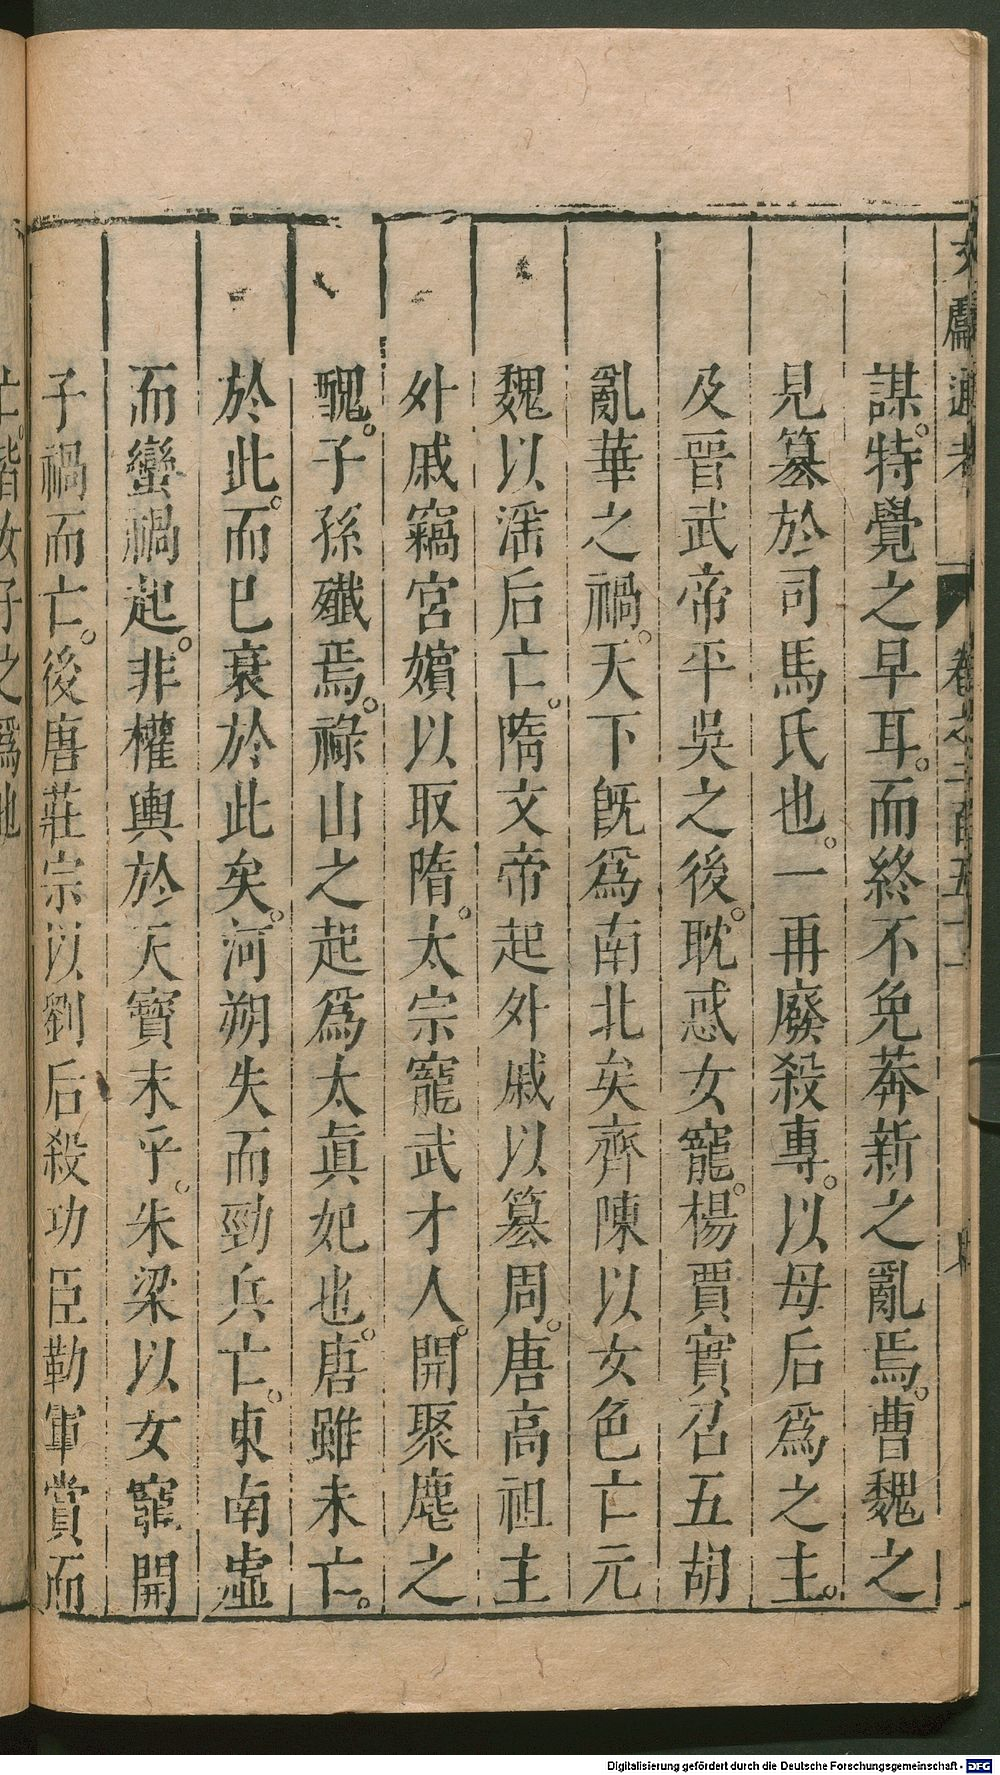 文獻通考 卷之二百五十一
謀。特覺之早耳。而終不免莽新之亂焉。曹魏之
見篡於司馬氏也。一再廢殺專。以母后爲之主。
及晉武帝平吳之後。耽惑女寵。楊賈實召五胡
亂華之禍。天下旣爲南北矣齊陳以女色亡元
魏以滛后亡。隋文帝起外戚以篡周。唐高祖主
外戚竊宮嬪以取隋。太宗寵武才人。開聚麀之
醜。子孫殲焉。祿山之起爲太眞妃也。唐雖未亡。
於此。而已衰於此矣。河朔失而勁兵亡。東南虛
而蠻禍起。非權輿於天寶末乎。朱梁以女寵開
子禍而亡。後唐莊宗以劉后殺功臣勒軍賞而
亡。皆女子之爲也
Digitalisierung gefördert durch die Deutsche Forschungsgemeinschaft - DFG